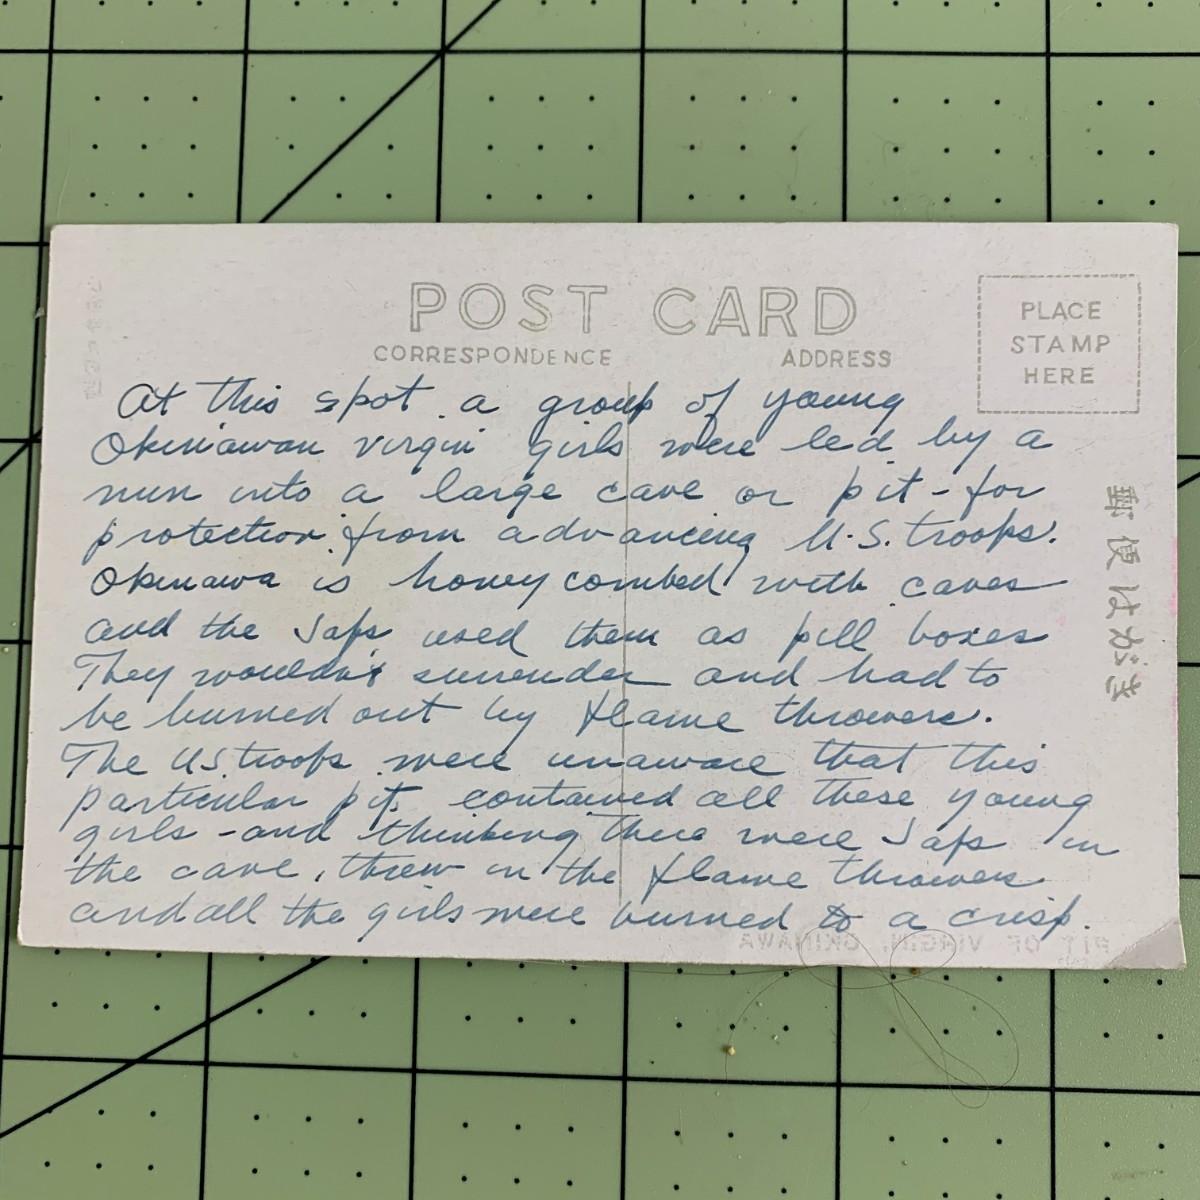 POST CARD
CORRESPONDENCE
ADDRESS
PLACE
STAMP
HERE
郵便はがき
At this spot a group of young
Okinawan virgin girls were led by a
nun into a large cave or pit - for
protection from advancing U.S. troops.
Okinawa is honey combed with caves
and the Japs used them as pill boxes
They wouldn't surrender and had to
be burned out by flame throwers.
The US troops were unaware that this
particular pit, contained all these young
girls - and thinking there were Japs in
the cave, threw in the flame throwers
and all the girls were burned to a crisp.
PIT OF VIRGIN, OKINAWA